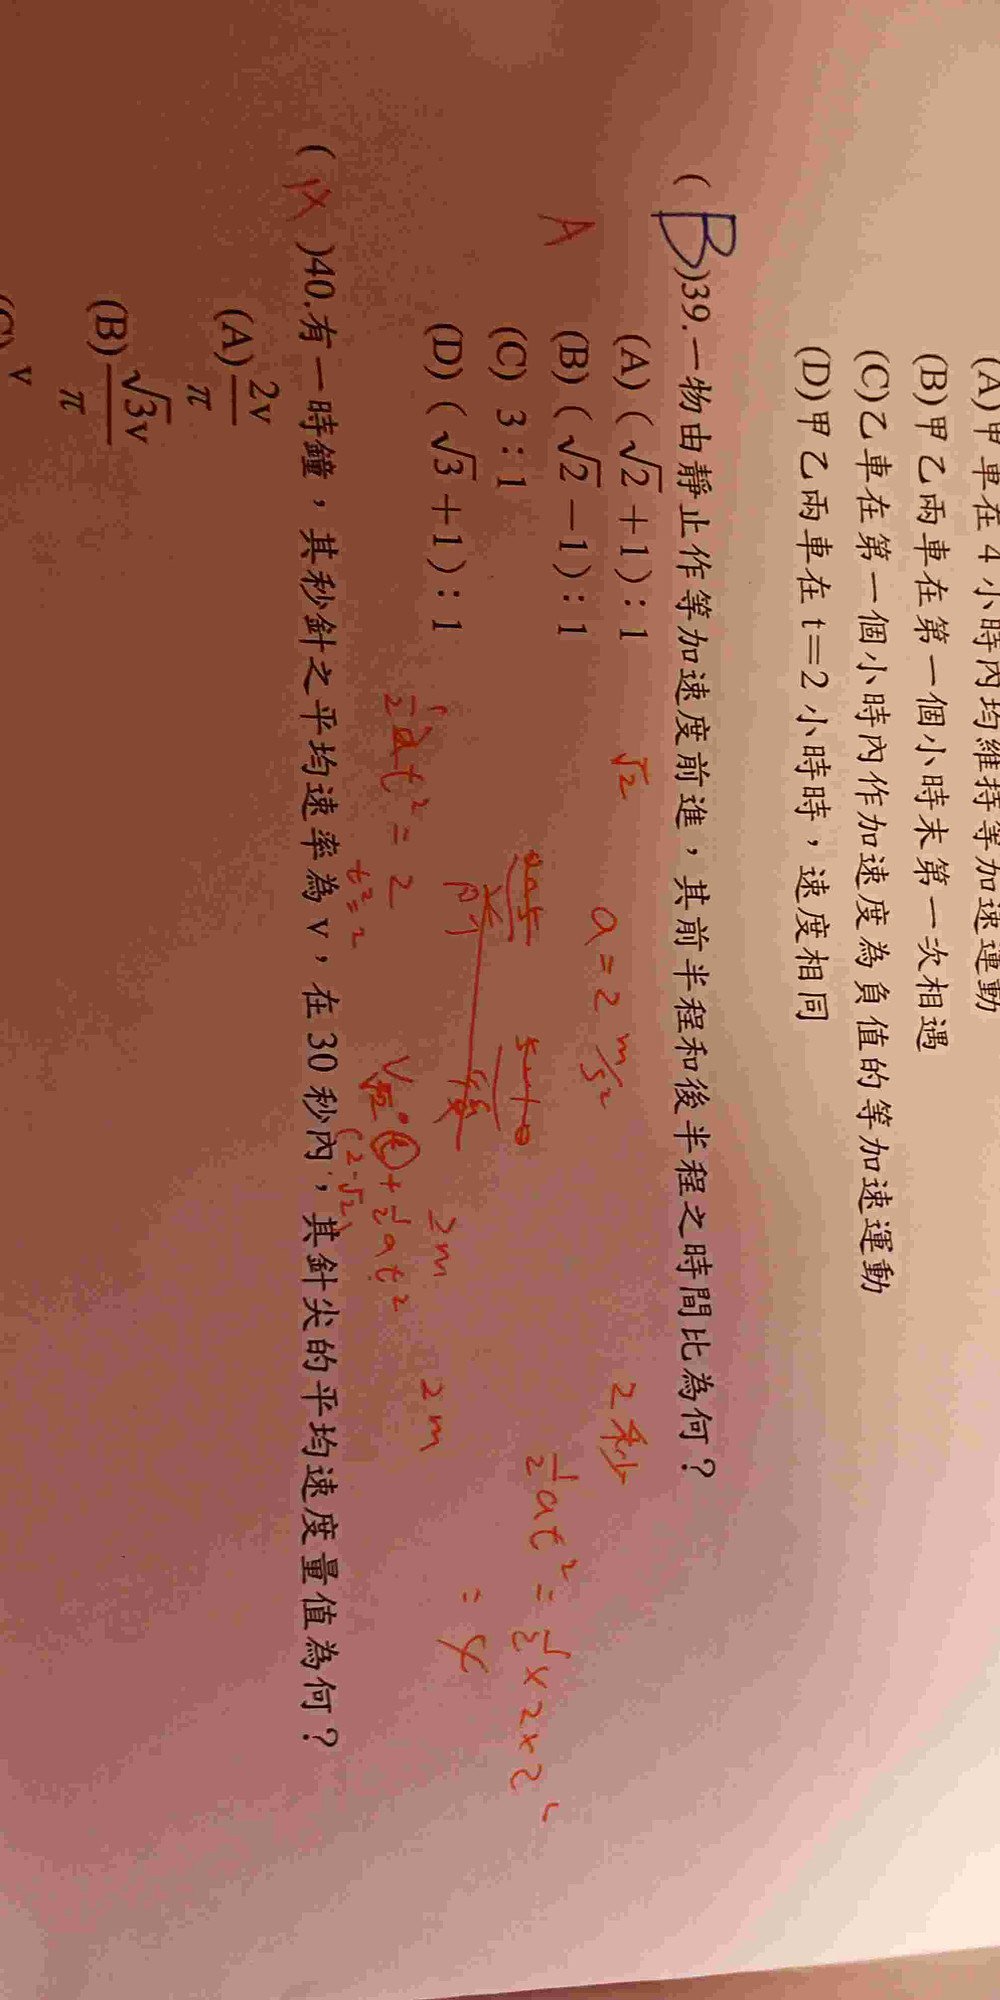 (A)甲車在 4 小時內均維持等加速運動
(B)甲乙兩車在第一個小時末第一次相遇
(C)乙車在第一個小時內作加速度為負值的等加速運動
(D)甲乙兩車在 t=2 小時時，速度相同
(B)39.一物由靜止作等加速度前進，其前半程和後半程之時間比為何？
A
(A)(√2+1):1
√2
a=2 m/s²
2秒
(B)(√2−1):1
½at²=½×2×2²
(C) 3:1
=4
(D)(√3+1):1
前
後
2m
2m
½at²=2
t²=2
(2-√2)
( )40.有一時鐘，其秒針之平均速率為 v，在 30 秒內，其針尖的平均速度量值為何？
(A) 2v/π
(B) √3v/π
(C) v